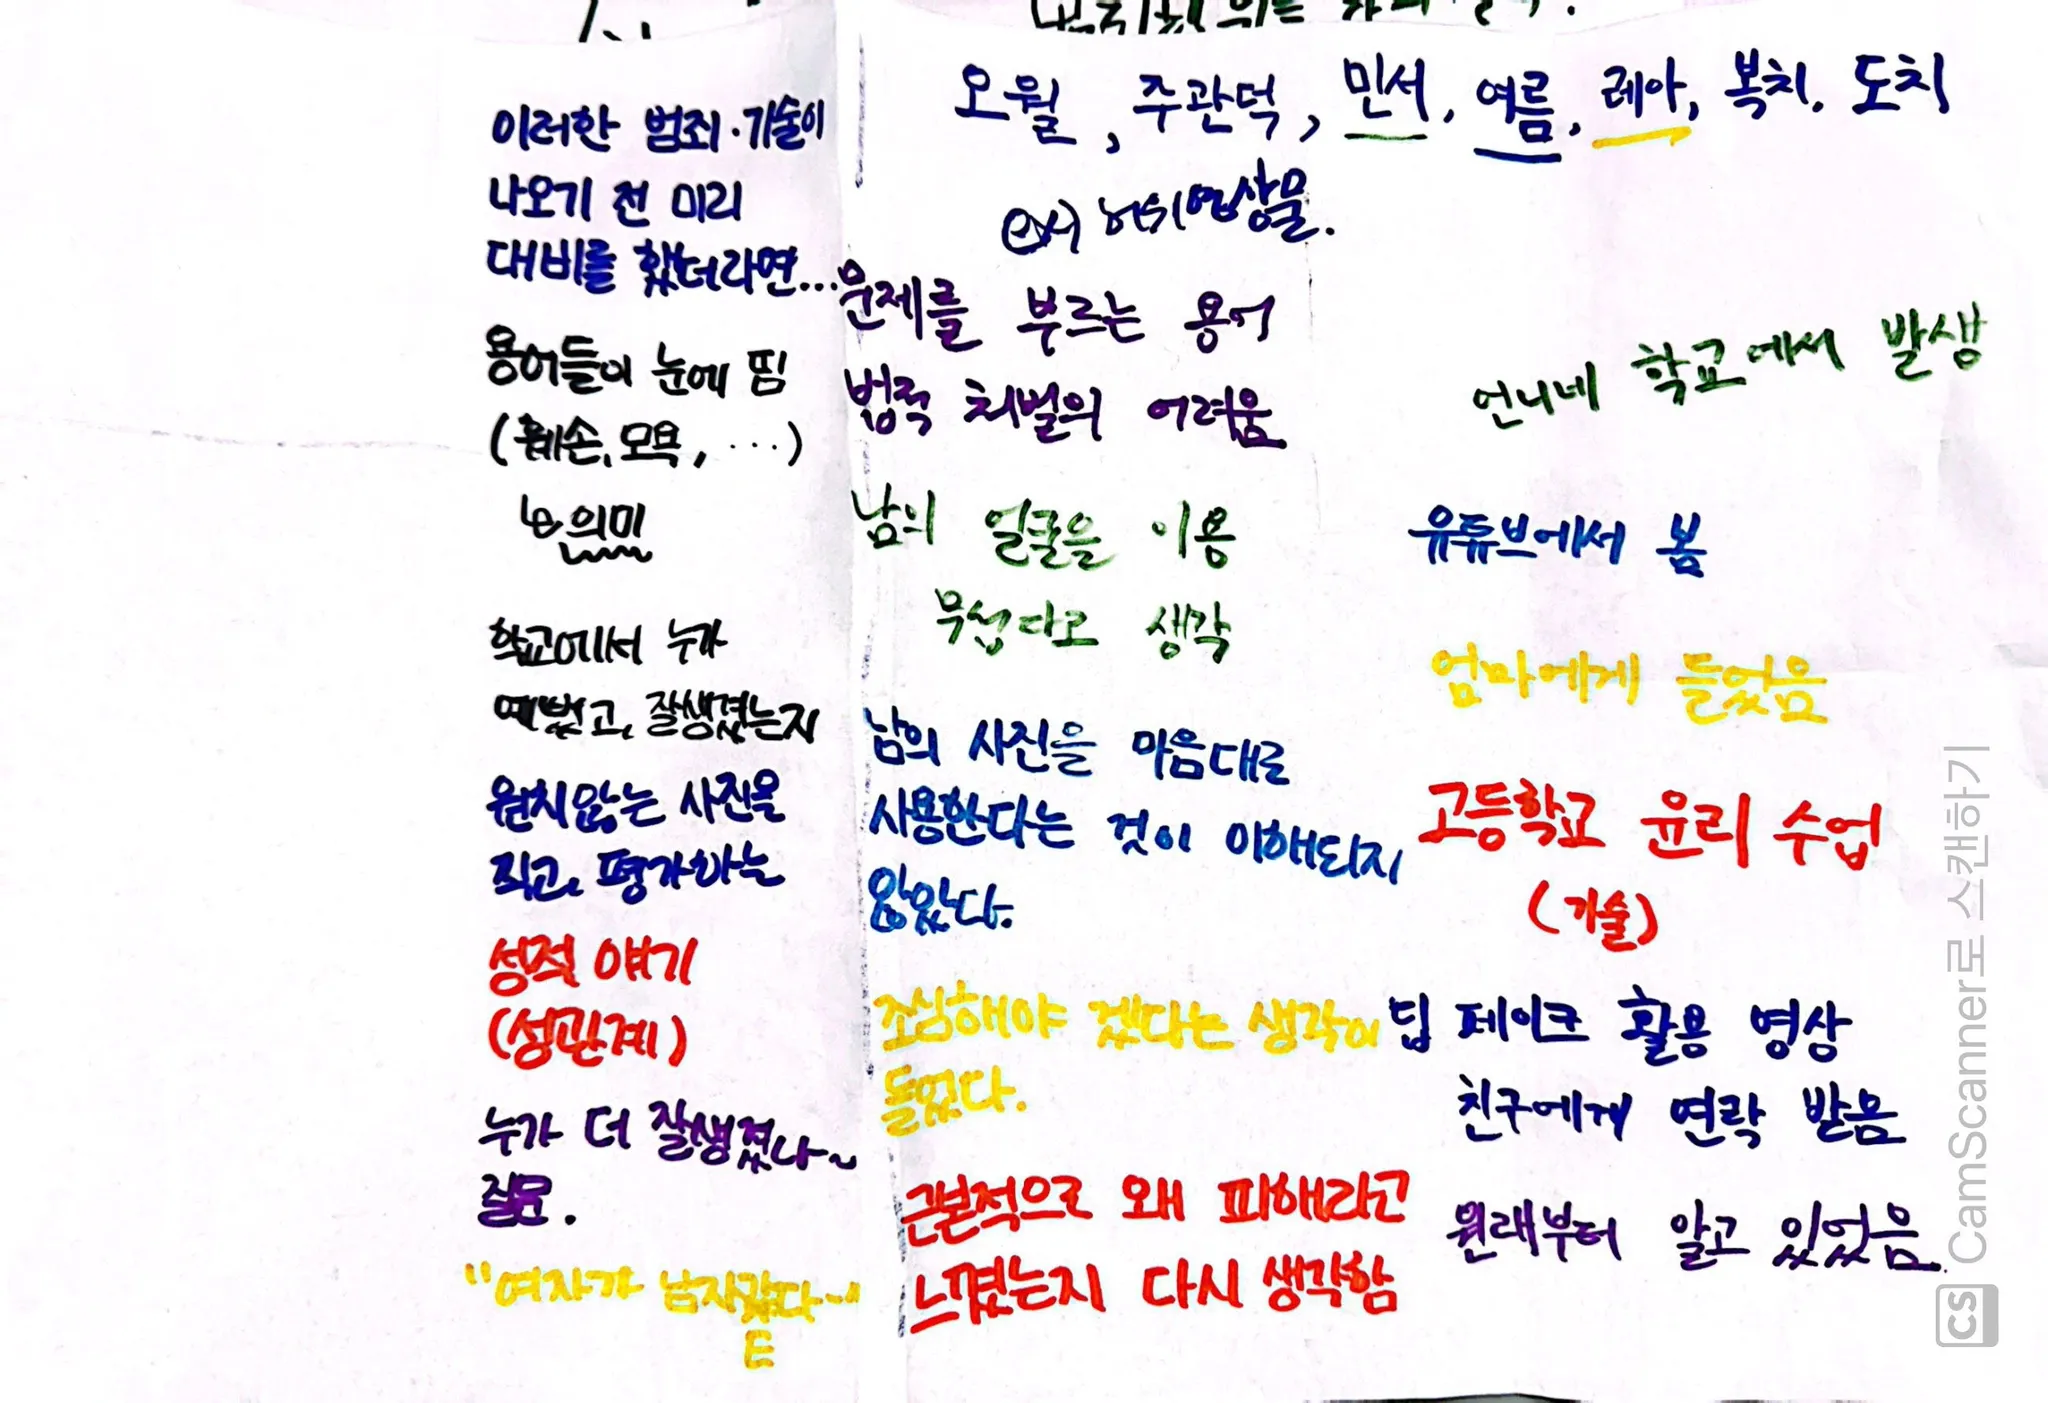 오월, 주관덕, 민서, 여름, 레아, 복치, 도치
영상물.
이러한 범죄·기술이
나오기 전 미리
대비를 했더라면...
용어들이 눈에 띔
(훼손, 모욕, ...)
의미
학교에서 누가
예쁘고, 잘생겼는지
원치않는 사진을
찍고, 평가하는
성적 얘기
(성관계)
누가 더 잘생겼나~
질문.
"여자가 남자같다..."
문제를 부르는 용어
법적 처벌의 어려움
남의 얼굴을 이용
무섭다고 생각
남의 사진을 마음대로
사용한다는 것이 이해되지
않았다.
조심해야 겠다는 생각이
들었다.
근본적으로 왜 피해라고
느꼈는지 다시 생각함
언니네 학교에서 발생
유튜브에서 봄
엄마에게 들었음
고등학교 윤리 수업
(기술)
딥 페이크 활용 영상
친구에게 연락 받음
원래부터 알고 있었음.
CS CamScanner로 스캔하기